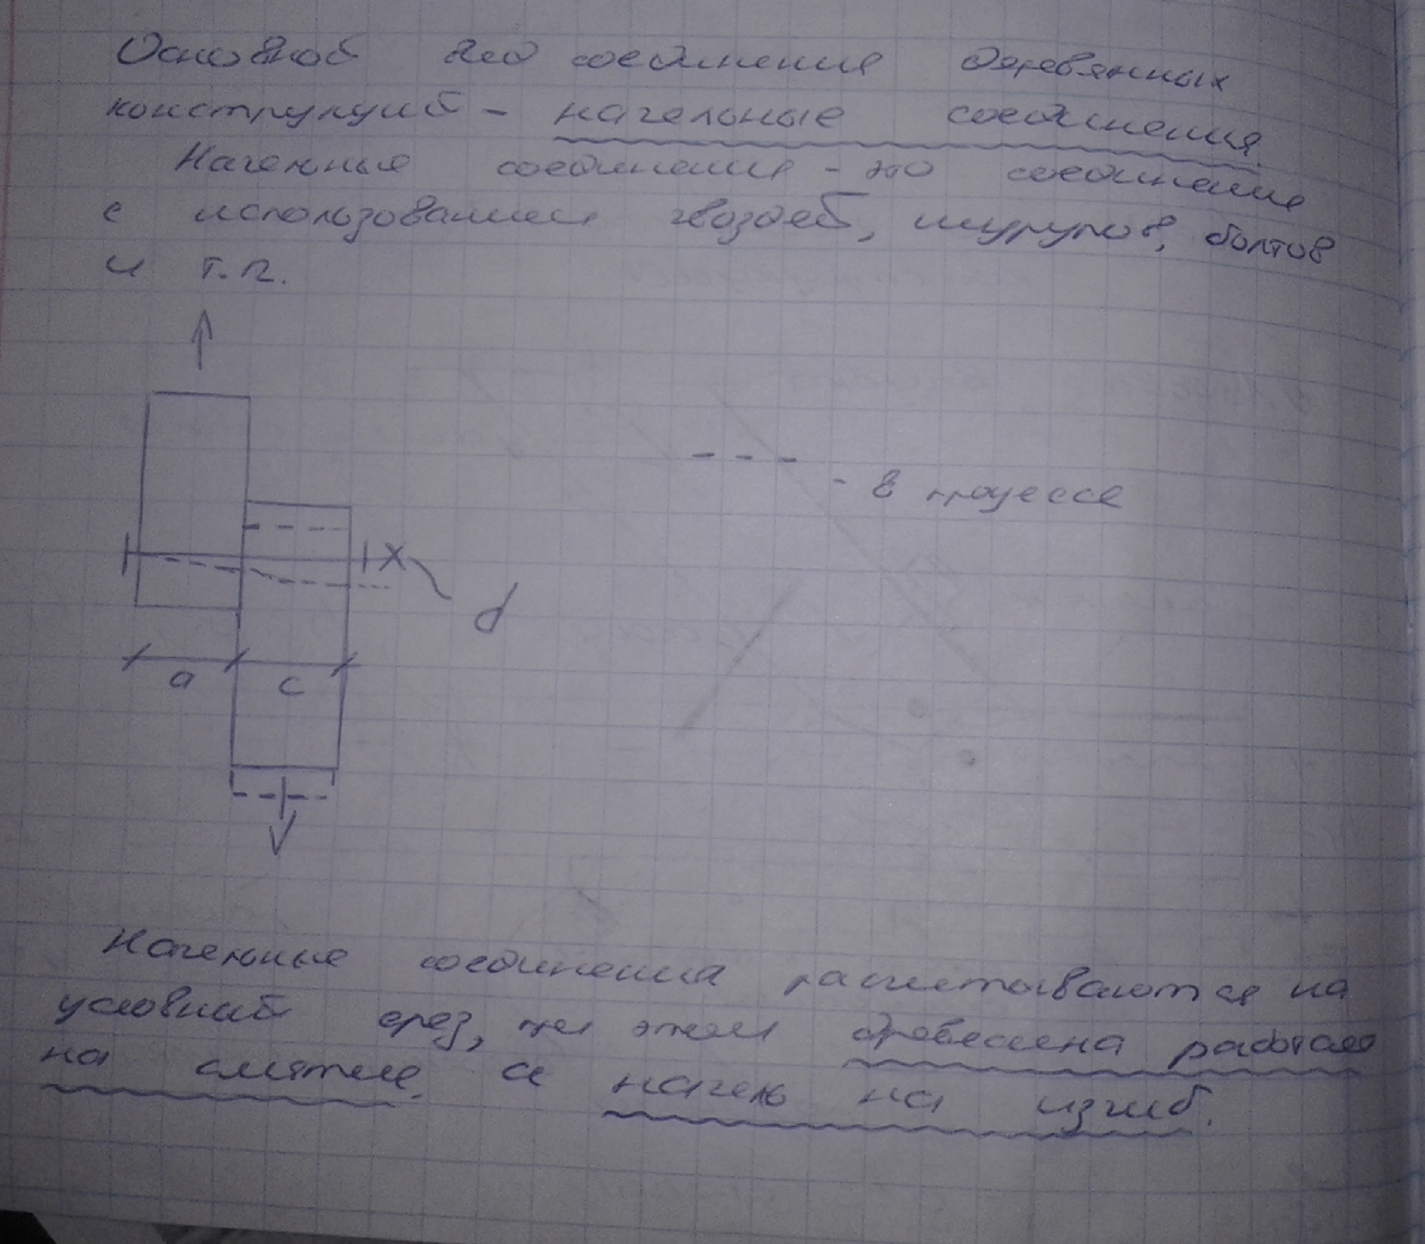 Основной вид соединения деревянных
конструкций - нагельные соединения.
Нагельные соединения - это соединение
с использованием гвоздей, шурупов, болтов
и т.п.
- в процессе
d
a c
Нагельные соединения рассчитываются на
условный срез, при этом древесина работает
на смятие, а нагель на изгиб.